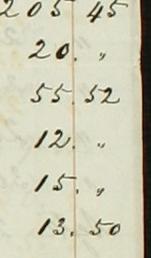 205 45
20. "
55. 52
12. "
15. "
13. 50